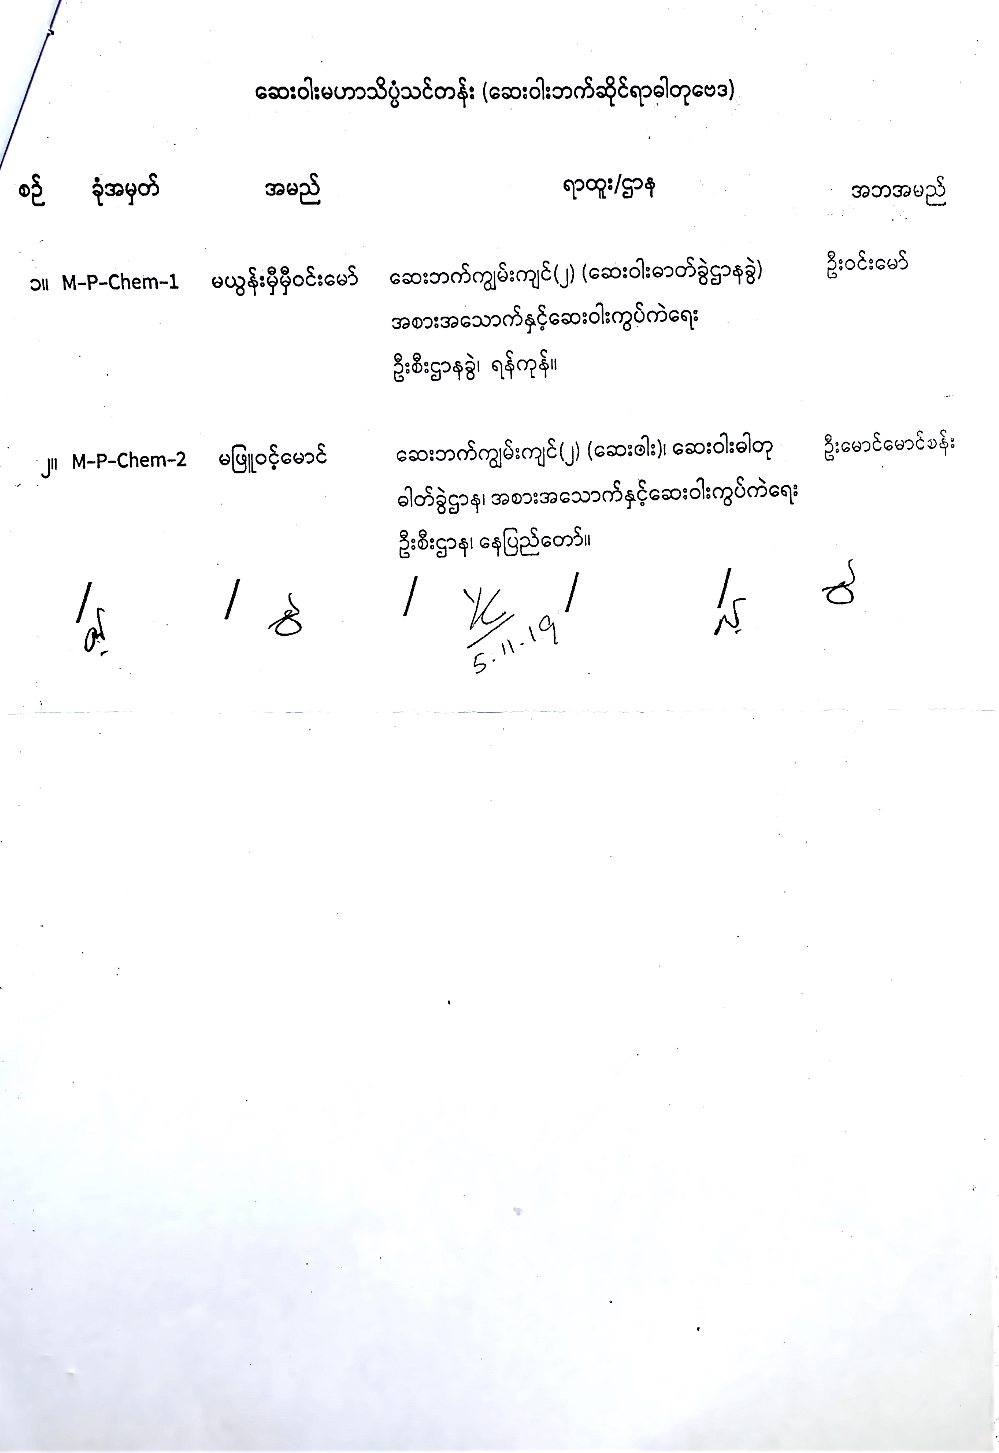 ဆေးဝါးမဟာသိပ္ပံသင်တန်း (ဆေးဝါးဘက်ဆိုင်ရာဓါတုဗေဒ)
စဉ် ခုံအမှတ် အမည် ရာထူး/ဌာန အဘအမည်
၁။ M-P-Chem-1 မယွန်းမှီမှီဝင်းမော် ဆေးဘက်ကျွမ်းကျင်(၂) (ဆေးဝါးဓာတ်ခွဲဌာနခွဲ) ဦးဝင်းမော်
အစားအသောက်နှင့်ဆေးဝါးကွပ်ကဲရေး
ဦးစီးဌာနခွဲ၊ ရန်ကုန်။
၂။ M-P-Chem-2 မဖြူဝင့်မောင် ဆေးဘက်ကျွမ်းကျင်(၂) (ဆေးဝါး)၊ ဆေးဝါးဓါတု ဦးမောင်မောင်ခန်း
ဓါတ်ခွဲဌာန၊ အစားအသောက်နှင့်ဆေးဝါးကွပ်ကဲရေး
ဦးစီးဌာန၊ နေပြည်တော်။
/ / / / /
5.11.19